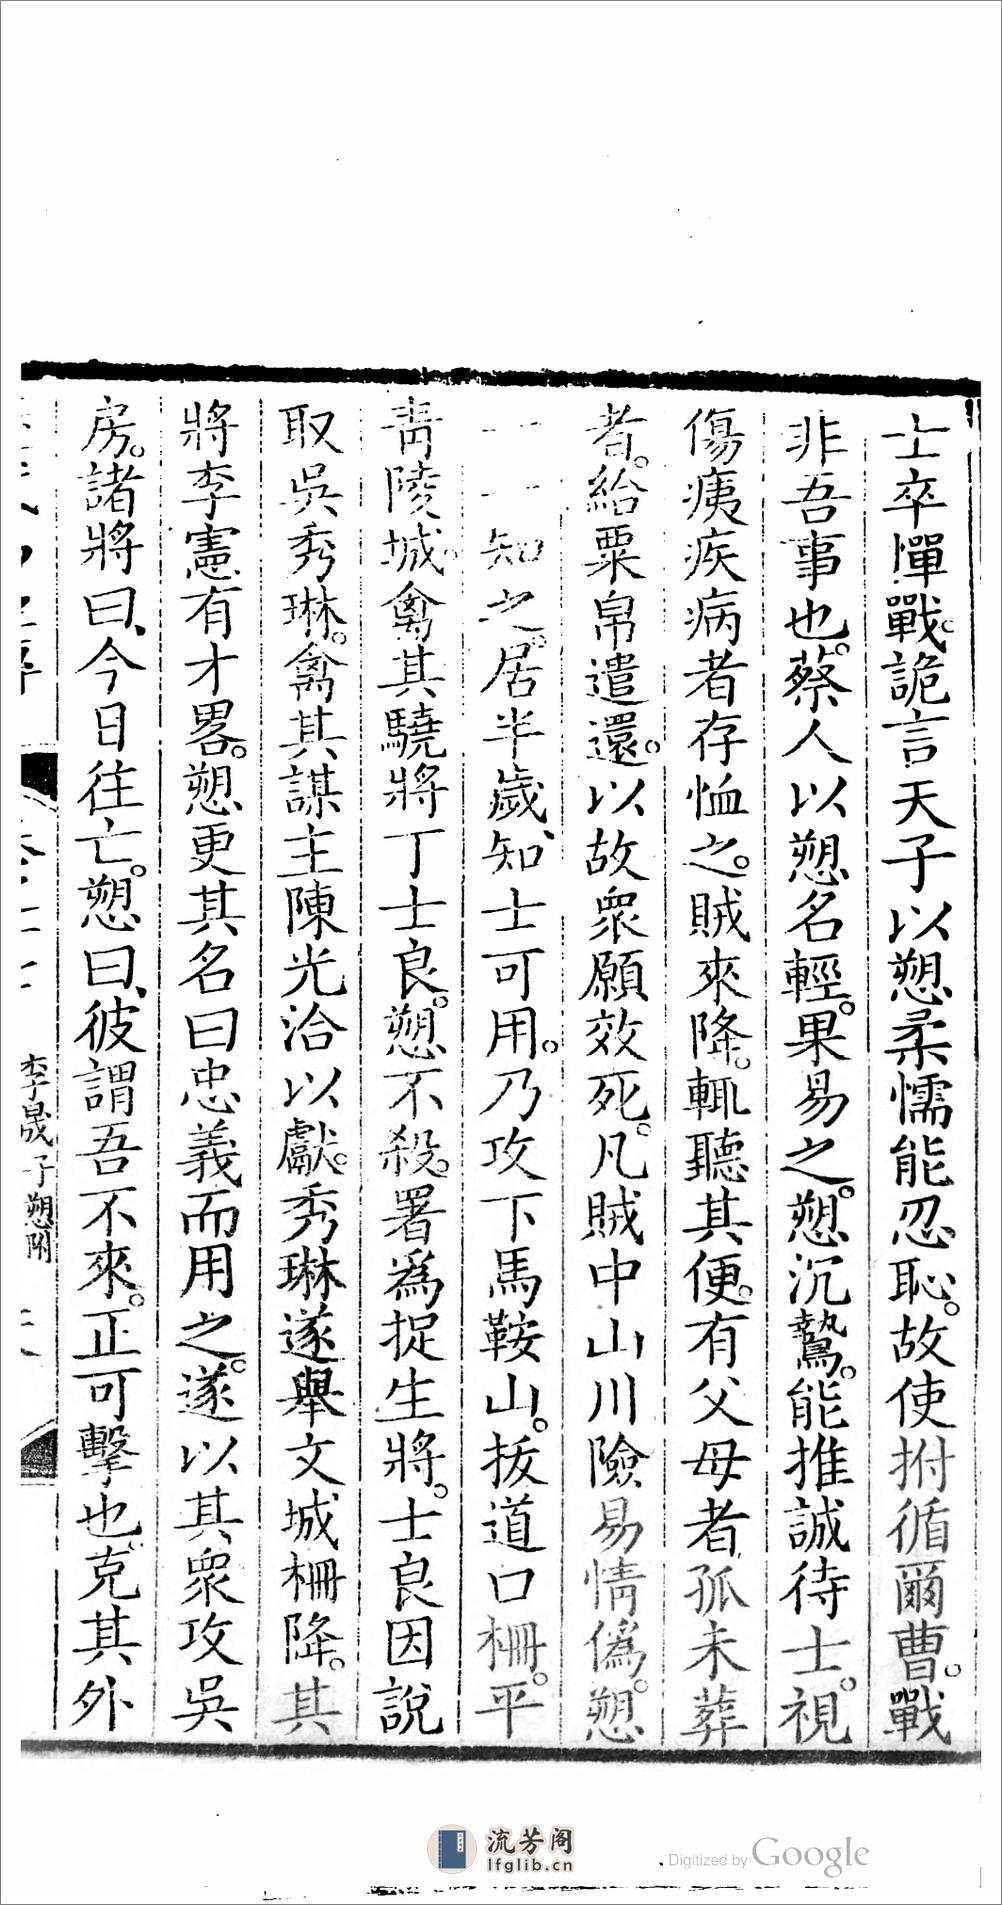 士卒憚戰。詭言天子以愬柔懦能忍恥。故使拊循爾曹。戰
非吾事也。蔡人以愬名輕。果易之。愬沉鷙。能推誠待士。視
傷痍疾病者存恤之。賊來降。輒聽其便。有父母者孤未葬
者。給粟帛遣還。以故衆願效死。凡賊中山川險易情僞。愬
一一知之。居半歲、知士可用。乃攻下馬鞍山。拔道口柵。平
靑陵城。禽其驍將丁士良。愬不殺。署爲捉生將。士良因說
取吳秀琳。禽其謀主陳光洽以獻。秀琳遂舉文城柵降。其
將李憲有才畧。愬更其名曰忠義而用之。遂以其衆攻吳
房。諸將曰、今日往亡。愬曰、彼謂吾不來。正可擊也。克其外
李晟 子愬附
流芳阁
lfglib.cn
Digitized by Google